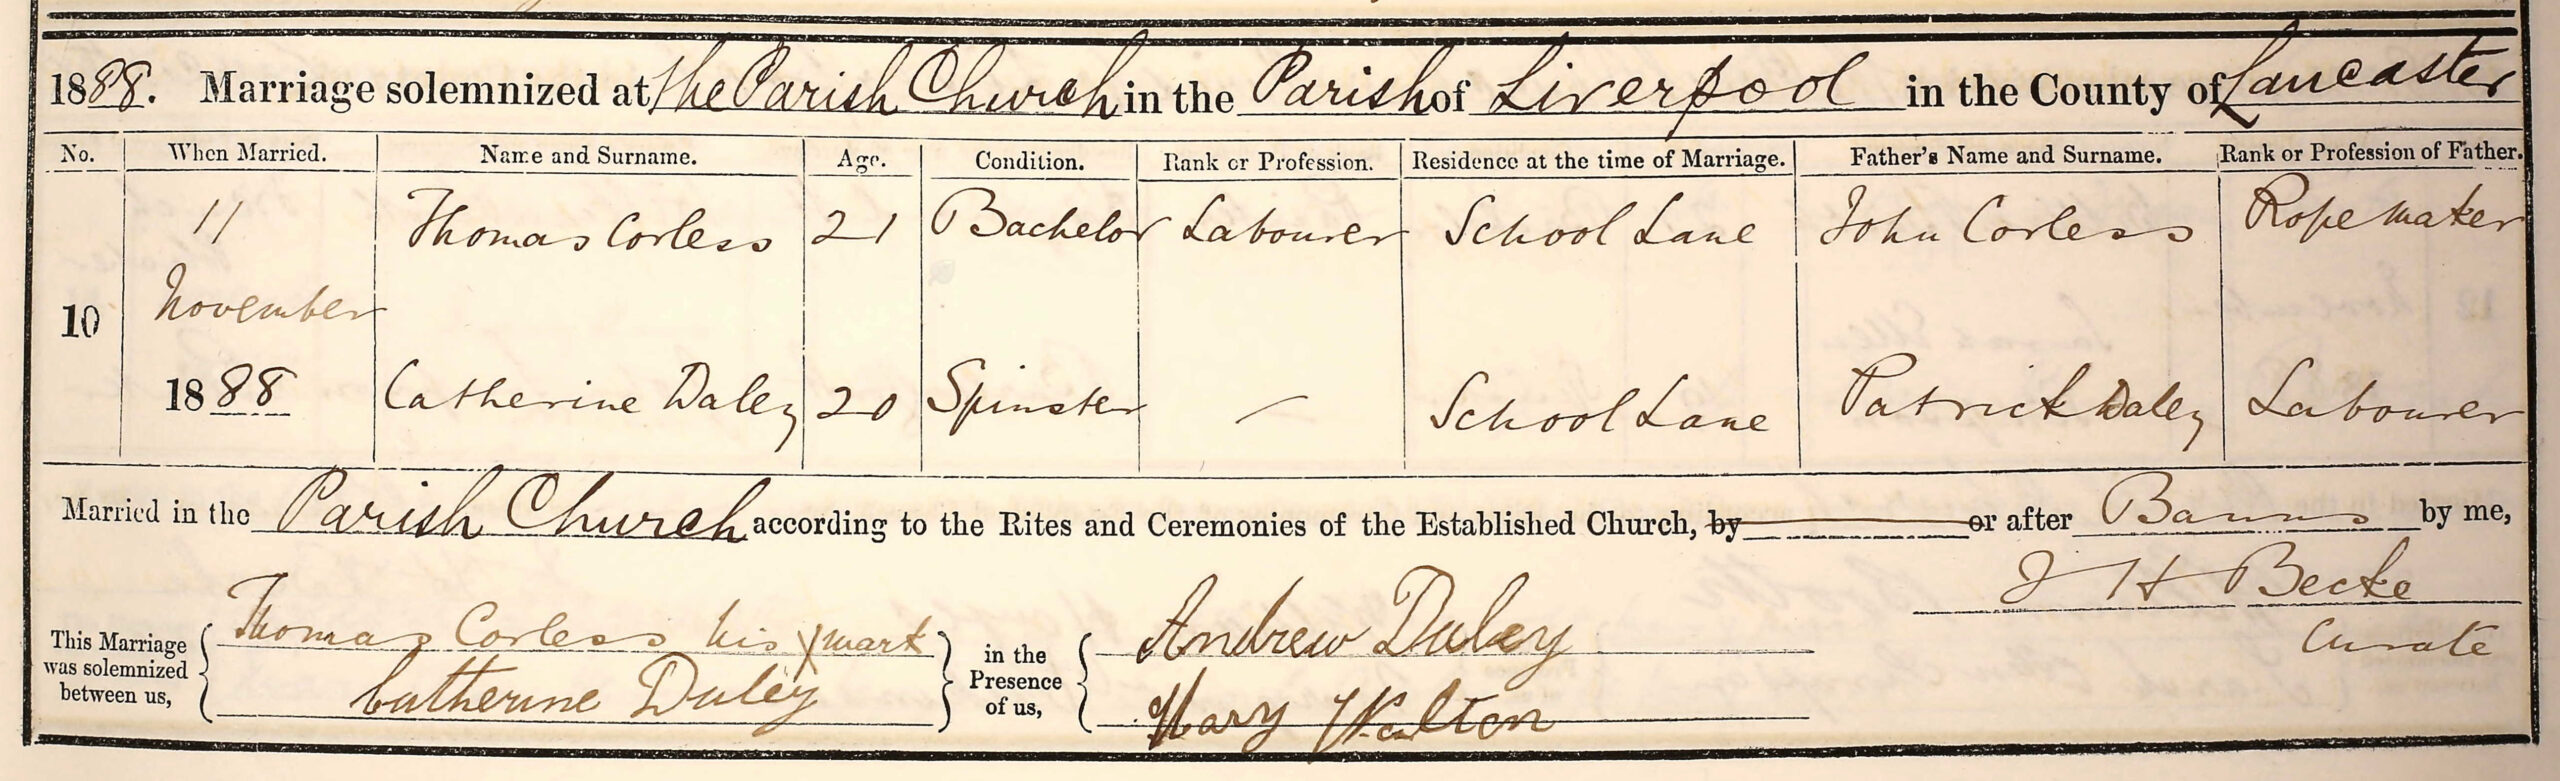 1888. Marriage solemnized at the Parish Church in the Parish of Liverpool in the County of Lancaster
No. When Married. Name and Surname. Age. Condition. Rank or Profession. Residence at the time of Marriage. Father's Name and Surname. Rank or Profession of Father.
11 Thomas Corless 21 Bachelor Labourer School Lane John Corless Rope maker
10 November
1888 Catherine Daley 20 Spinster — School Lane Patrick Daley Labourer
Married in the Parish Church according to the Rites and Ceremonies of the Established Church, by or after Banns by me,
J H Becke
Curate
This Marriage was solemnized between us,
Thomas Corless his X mark
Catherine Daley
in the Presence of us,
Andrew Daley
Mary Walton